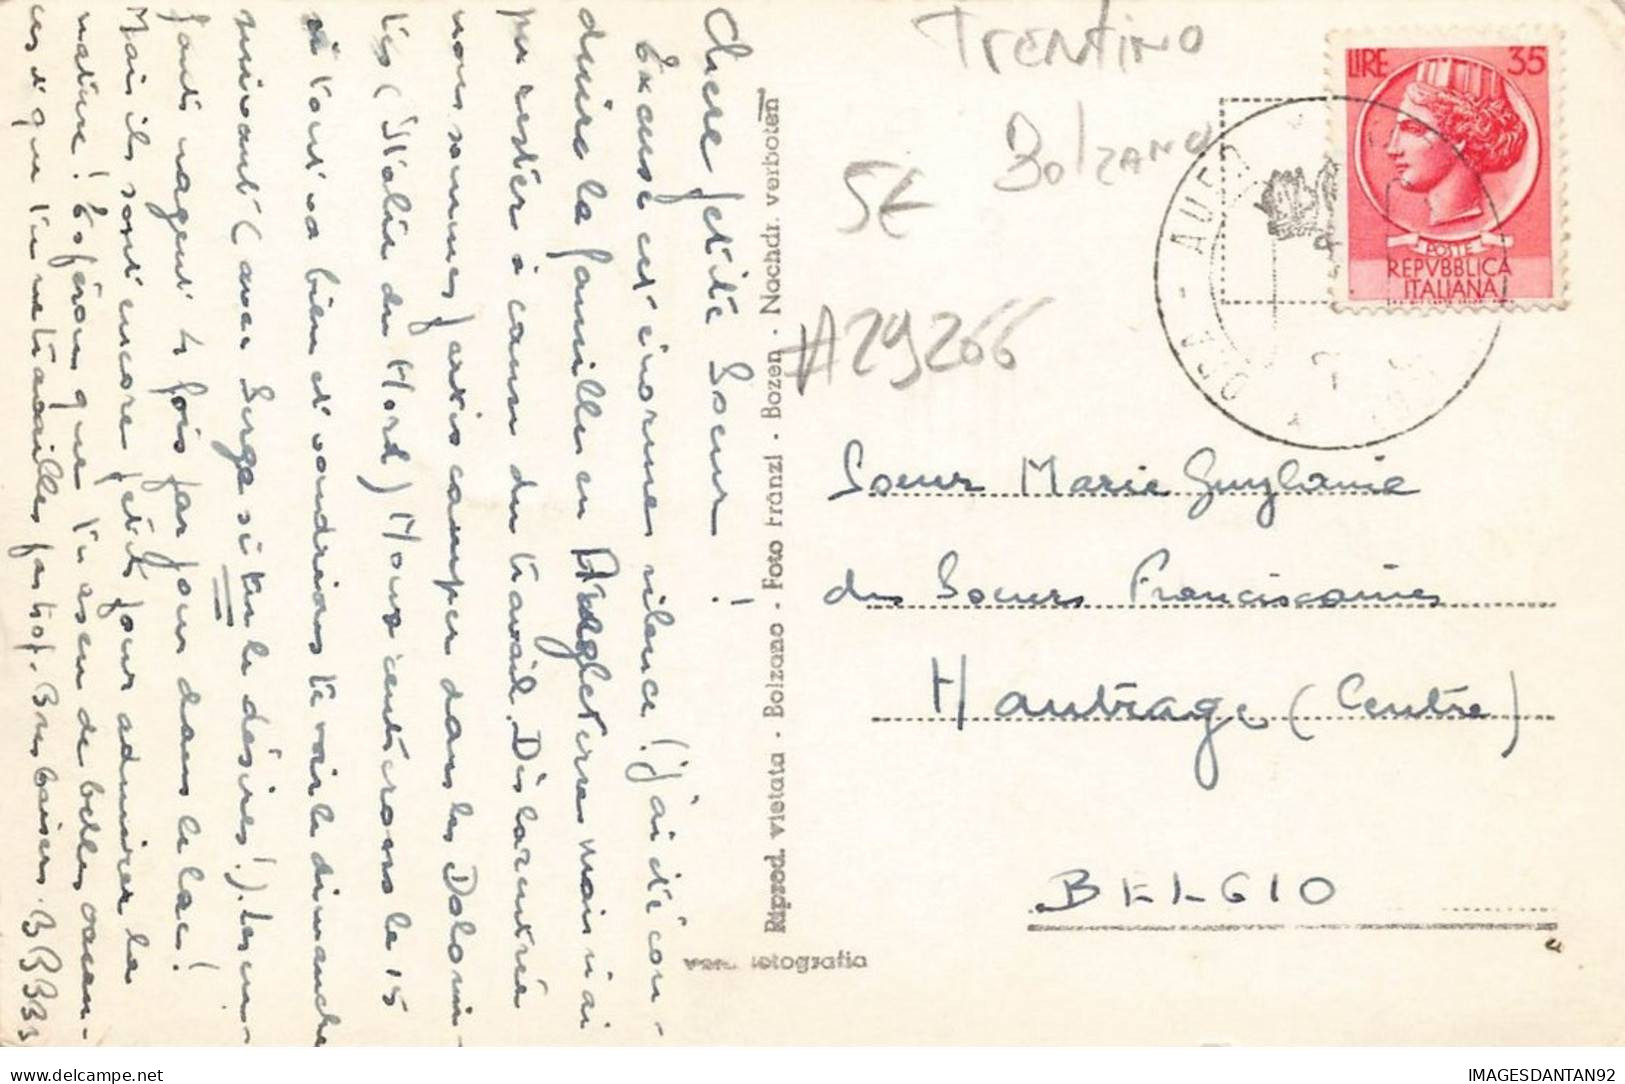 Chère petite Soeur !
Excuse cet énorme silence ! J'ai dé con-
duire la famille en Angleterre mais n'ai
pu rester à cause du travail. Dès la rentrée
nous sommes partis camper dans les Dolomi-
tes (Italie du Nord) Nous rentrerons le 15
et tout va bien et voudrions te voir le dimanche
suivant (avec Serge si tu le désires !). Les en-
fants nagent 4 fois par jour dans le lac !
Mais ils sont encore petits pour admirer la
nature ! Espérons que tu as eu de belles vacan-
ces et que tu ne travailles pas trop. Bns baisers. BBBB
Riprod. vietata - Bolzano - Foto Fränzl - Bozen - Nachdr. verboten
vera fotografia
Trentino
Bolzano
5€
#29266
LIRE 35
POSTE
REPVBBLICA
ITALIANA
ORA - AUER
Soeur Marie Guylaine
des Soeurs Franciscaines
Hautrage (Centre)
BELGIO
delcampe.net
IMAGESDANTAN92